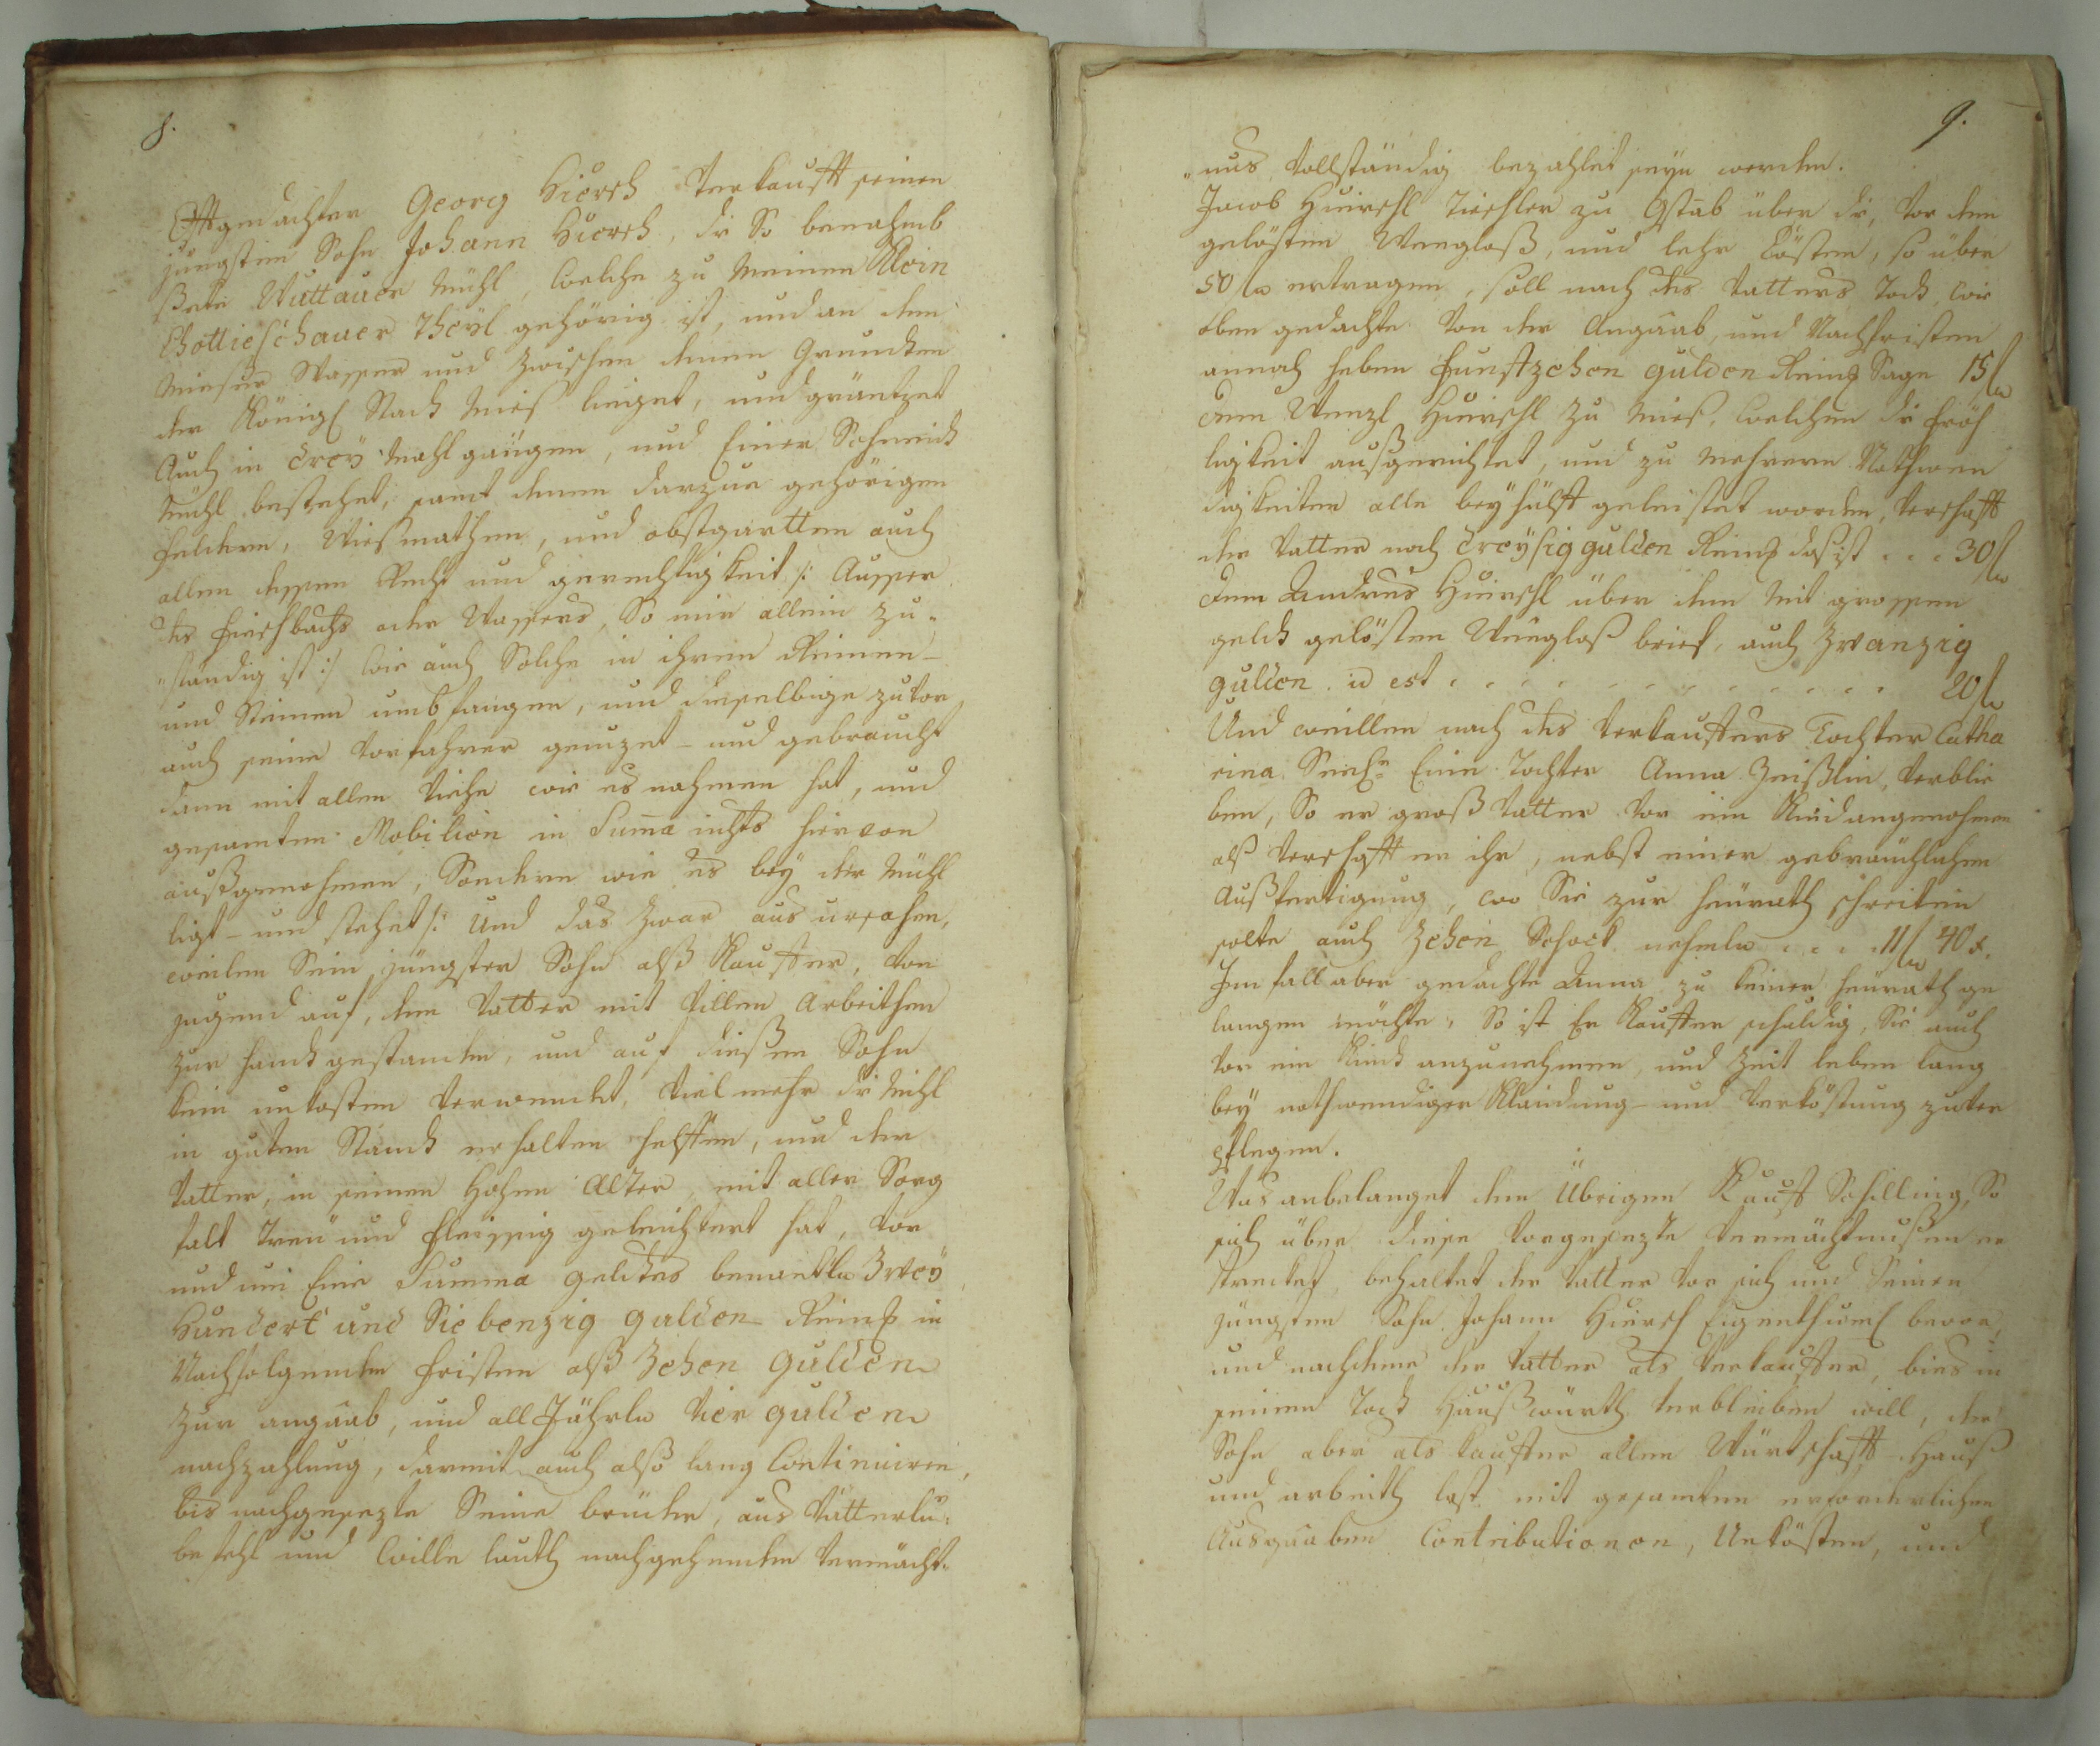 8.
Offtgedachter Georg Hiersch Verkaufft seinen
jüngsten Sohn Johann Hiersch, die So benahmb
ßete Wuttauer Mühl, welche zu Meinen Klein
Chottieschauer Theyl gehörig ist, und an dem
Mieser Wasser und zwischen denen Grundten
der Königl Stadt Mies lieget, und gräntzet
Auch in drey Mahl gängen, und Einer Schneid
Mühl bestehet, samt denen darzue gehörigen
Feldern, Wießmathen, und obstgartten auch
allen dessen Recht und gerechtigkeit /: Ausser
des Fischbachs oder Wassers, So mir allein zu-
"ständig ist :/ wie auch Solche in ihren Reinen-
und Steinen umbfangen, und dieselbige zuvor
auch seine Vorfahrer genuzet- und gebraucht
dann mit allen Viehe wie es nahmen hat, und
gesamten Mobilien in Suma nichts hiervon
außgenohmen, Sondern wie es bey der Mühl
ligt- und stehet /: Und das zwar aus ursachen,
weilen Sein jüngster Sohn alß Kauffer, von
jugend auf, dem Vatter mit Villen Arbeithen
zur handt gestanden, und auf dießen Sohn
kein unkosten Verwendet, Viel mehr die Mihl
in guten Standt erhalten helffen, und den
Vatter, in seinen Hohen Alter, mit aller Sorg
falt Treü und fleissig geleichtert hat, vor
und um Eine Summa geldtes benantl. Zwey
Hundert und Siebenzig gulden Reins in
Nachfolgenden fristen alß Zehen Gulden
zur angaab, und all Jährl. Vier gulden
nachzahlung, darmit auch also lang Continuiren,
bis nachgesezte Seine brüder, aus Vätterlı:
befehl und Wille lauth nachgehenden Vermächt-
9.
"nus, Vollständig bezahlet seyn werden.
Jacob Huirschl Tischler zu Gstab über die, vor dem
gelösten Weegloß, und lehr Kösten, so über
50 f ertragen, soll nach des Vatters Todt, wie
oben gedachte von der Angaab, und Nachfristen
annoch heben funffzehen gulden Reins Sage 15 f
dem Wenzl Huirschl zu Mies, welchen die fröh
ligkeit außgerichtet, und zu Mehreren Nothwen
digkeiten alle beyhülff geleistet worden, Verschafft
der Vatter noch dreysig gulden Reins das ist . . . 30 f
dem Andres Huirschl über den Mit grossen
geldt gelösten Weegloß brief, auch Zwanzig
gulden. id est . . . . . . . . . . . . 20 f
Und weillen nach des Verkauffers Tochter Catha
rina Seel: Eine Tochter Anna Zeißlin, Verblie
ben, So er groß Vatter vor ein Kind angenohmen
alß Verschafft er ihr, nebst einer gebräuchlichen
Außfertigung, wo Sie zur heurath schreiten
solte auch Zehen Schock nehml. . . . 11 f 40 x.
Im fall aber gedachte Anna zu keiner heurath ge
langen möchte, So ist Er Kauffer schuldig, Sie auch
vor ein Kind anzunehmen, und Zeit leben lang
bey nothwendiger Kleidung- und Verköstung zu ver
pflegen.
Was anbelanget den Übrigen Kauff Schilling, So
sich über diese Vorgesezte Vermächtnußen er
strecket, behaltet der Vatter vor sich und Seinen
jüngsten Sohn Johann Hiersch Eigenthuml bevor,
und nachdeme der Vatter als Verkauffer, bies in
seinen Todt Haußwürth Verbleiben will, der
Sohn aber als Kauffer allen Würtschafft- Hauß
und arbeith last mit gesamten erforderlichen
Ausgaaben Contributionen, Unkösten, und